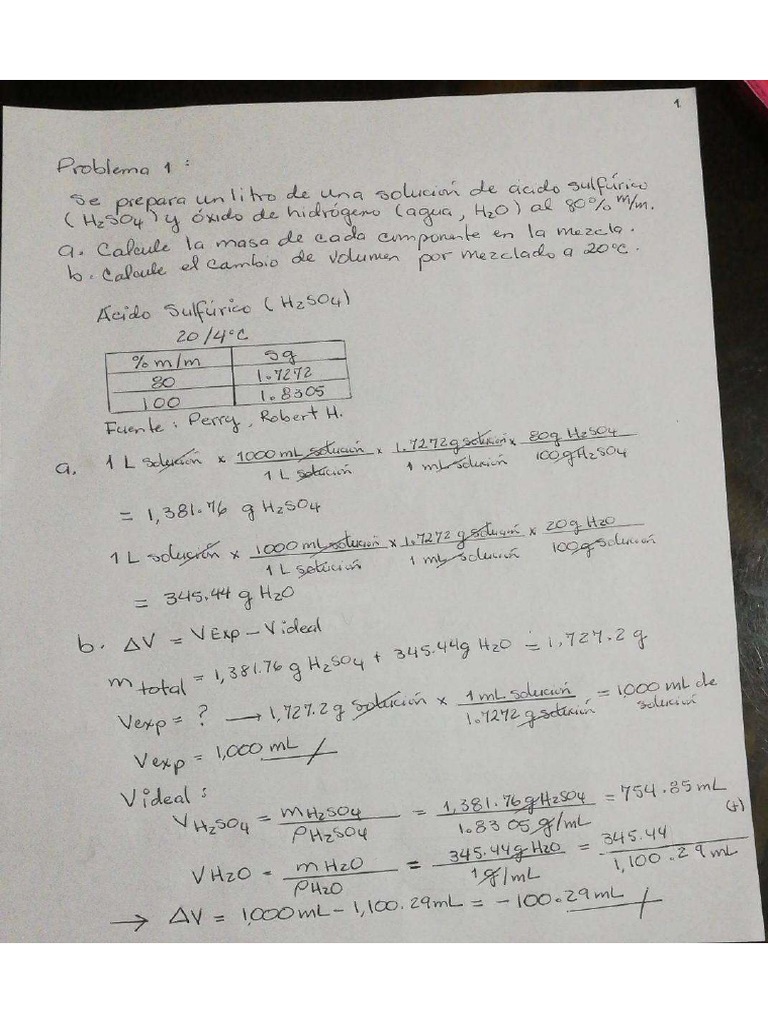 1
Problema 1 :
Se prepara un litro de una solución de ácido sulfúrico
(H2SO4) y óxido de hidrógeno (agua, H2O) al 80% m/m.
a. Calcule la masa de cada componente en la mezcla.
b. Calcule el cambio de volumen por mezclado a 20°C.
Ácido Sulfúrico (H2SO4)
20/4°C
% m/m sg
80 1.7272
100 1.8305
Fuente: Perry, Robert H.
a. 1 L solución x 1000 mL solución / 1 L solución x 1.7272 g solución / 1 mL solución x 80 g H2SO4 / 100 g H2SO4
= 1,381.76 g H2SO4
1 L solución x 1000 mL solución / 1 L solución x 1.7272 g solución / 1 mL solución x 20 g H2O / 100 g solución
= 345.44 g H2O
b. ΔV = VExp - Videal
m total = 1,381.76 g H2SO4 + 345.44 g H2O = 1,727.2 g
Vexp = ? → 1,727.2 g solución x 1 mL solución / 1.7272 g solución = 1000 mL de solución
Vexp = 1,000 mL
Videal :
VH2SO4 = mH2SO4 / ρH2SO4 = 1,381.76 g H2SO4 / 1.8305 g/mL = 754.85 mL (+)
VH2O = mH2O / ρH2O = 345.44 g H2O / 1 g/mL = 345.44 / 1,100.29 mL
→ ΔV = 1,000 mL - 1,100.29 mL = -100.29 mL